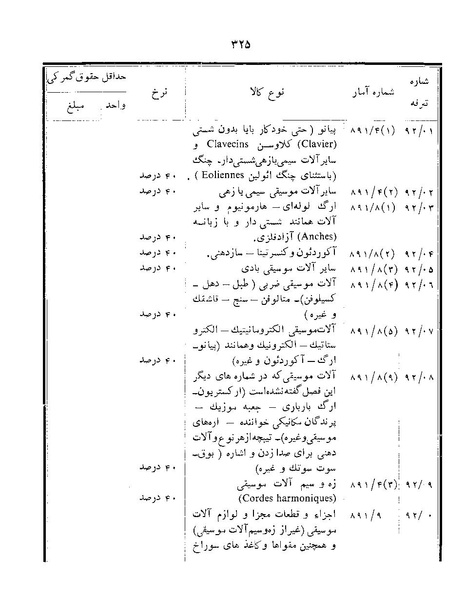 ۳۲۵
شماره تعرفه	شماره آمار	نوع کالا	نرخ	حداقل حقوق گمرکی
واحد	مبلغ
۹۲/۰۱	۸۹۱/۴(۱)	پیانو ( حتی خودکار بایا بدون شستی
(Clavier) کلاوسن Clavecins و
سایرآلات سیمی‌بازهی‌شستی‌دار. چنگ
(باستثنای چنگ ائولین Eoliennes ) .	۴۰ درصد
۹۲/۰۲	۸۹۱/۴(۲)	سایرآلات موسیقی سیمی یا زهی	۴۰ درصد
۹۲/۰۳	۸۹۱/۸(۱)	ارگ لوله‌ای – هارمونیوم و سایر
آلات همانند شستی دار و با زبانه
(Anches) آزادفلزی.	۴۰ درصد
۹۲/۰۴	۸۹۱/۸(۲)	آکوردئون و کنسرتینا – سازدهنی.	۴۰ درصد
۹۲/۰۵	۸۹۱/۸(۳)	سایر آلات موسیقی بادی	۴۰ درصد
۹۲/۰۶	۸۹۱/۸(۴)	آلات موسیقی ضربی ( طبل – دهل –
کسیلوفن)– متالوفن – سنج – قاشقك
و غیره )	۴۰ درصد
۹۲/۰۷	۸۹۱/۸(۵)	آلات‌موسیقی الکترومانیتیك – الکترو
ستاتیك – الکترونیك وهمانند (پیانو–
ارگ – آکوردئون و غیره)	۴۰ درصد
۹۲/۰۸	۸۹۱/۸(۹)	آلات موسیقی‌که در شماره های دیگر
این فصل گفته‌نشده‌است (ارکستریون–
ارگ بارباری – جعبه موزیك –
پرندگان مکانیکی خواننده – اره‌های
موسیقی‌وغیره)– تیپچه‌ازهرنوع‌وآلات
دهنی برای صدا زدن و اشاره ( بوق–
سوت سوتك و غیره)	۴۰ درصد
۹۲/۰۹	۸۹۱/۴(۳)	زه و سیم آلات موسیقی
(Cordes harmoniques)	۴۰ درصد
۹۲/۱۰	۸۹۱/۹	اجزاء و قطعات مجزا و لوازم آلات
موسیقی (غیراز زه‌وسیم‌آلات موسیقی)
و همچنین مقواها و کاغذ های سوراخ